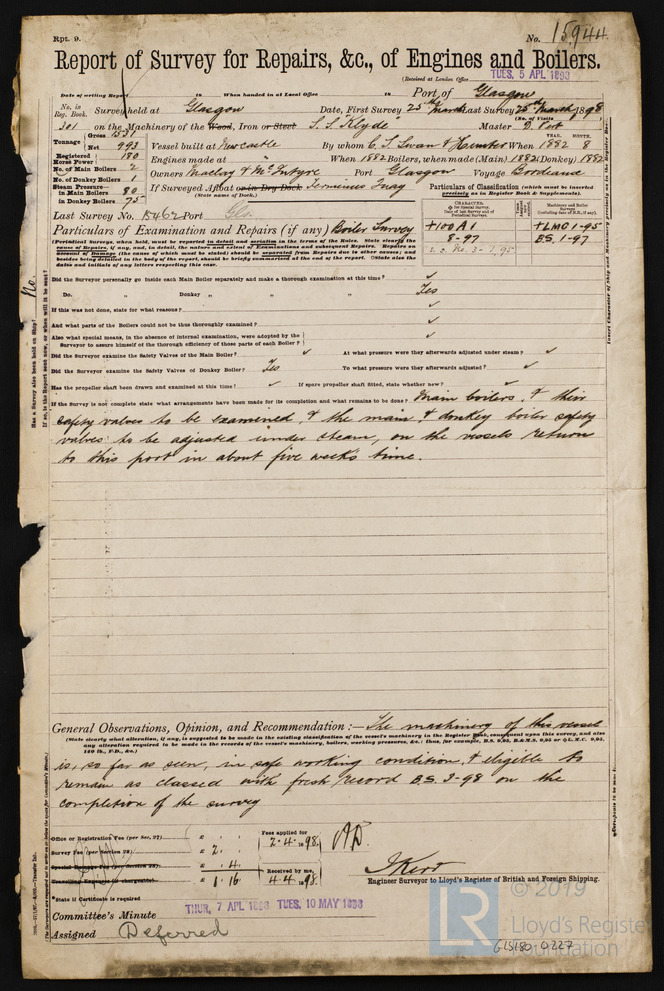 Rpt. 9.
No. 15944
Report of Survey for Repairs, &c., of Engines and Boilers.
(Received at London Office TUES. 5 APL 1898
Date of writing Report to When handed in at Local Office to Port of Glasgow
No. in Reg. Book. Survey held at Glasgow Date, First Survey 25th March Last Survey 25th March 1898
(No. of Visits
301 on the Machinery of the Wood, Iron or Steel S.S. "Klyde" Master D. Port
Tonnage Gross 1531
Net 993 Vessel built at Newcastle By whom C. S. Swan & Hunter When 1882 YEAR. MONTH. 8
Registered Horse Power 180 Engines made at " When 1882 Boilers, when made (Main) 1882 (Donkey) 1882
No. of Main Boilers 2
No. of Donkey Boilers 1 Owners Maclay & McIntyre Port Glasgow Voyage Bordeaux
Steam Pressure—
in Main Boilers 80 If Surveyed Afloat or in Dry Dock Terminus Quay
in Donkey Boilers 75 (State name of Dock.)
Particulars of Classification (which must be inserted precisely as in Register Book & Supplements).
Last Survey No. 15462 Port Glo.
+100 A1 +LMC 1-95
8-97 BS. 1-97
Particulars of Examination and Repairs (if any) Boiler Survey
(Periodical Surveys, when held, must be reported in detail and seriatim in the terms of the Rules. State clearly the
cause of Repairs, if any, and, in detail, the nature and extent of Examinations and subsequent Repairs. Repairs on
account of Damage (the cause of which must be stated) should be separated from Repairs due to other causes; and
besides being detailed in the body of the report, should be briefly summarized at the end of the report. State also the
dates and initials of any letters respecting this case.
Did the Surveyor personally go inside each Main Boiler separately and make a thorough examination at this time?
Do. " Donkey " " " Yes
If this was not done, state for what reasons?
And what parts of the Boilers could not be thus thoroughly examined?
Also what special means, in the absence of internal examination, were adopted by the
Surveyor to assure himself of the thorough efficiency of those parts of each Boiler?
Did the Surveyor examine the Safety Valves of the Main Boiler? At what pressure were they afterwards adjusted under steam?
Did the Surveyor examine the Safety Valves of Donkey Boiler? Yes To what pressure were they afterwards adjusted?
Has the propeller shaft been drawn and examined at this time? If spare propeller shaft fitted, state whether new?
If the Survey is not complete state what arrangements have been made for its completion and what remains to be done? Main boilers, & their
safety valves to be examined, & the main & donkey boiler safety
valves to be adjusted under steam, on the vessels return
to this port in about five week's time.
General Observations, Opinion, and Recommendation:— The machinery of this vessel
(State clearly what alteration, if any, is suggested to be made in the existing classification of the vessel's machinery in the Register Book, consequent upon this survey, and also
any alteration required to be made in the records of the vessel's machinery, boilers, working pressures, &c.; thus, for example, B.S. 9,95, B.&M.S. 9,95 or L.M.C. 9,95,
140 lb., F.D., &c.)
is, so far as seen, in safe working condition, & eligible to
remain as classed with fresh record B.S. 3-98 on the
completion of the survey
Office or Registration Fee (per Sec. 27) £ : : Fees applied for
Survey Fee (per Section 28) £ 2 : : 2.4.1898
Special Damage Fee (per Section 28) £ : 4 : Received by me,
Travelling Expenses (if chargeable) £ 1 : 16 : 4.4.1898
J Kerr
Engineer Surveyor to Lloyd's Register of British and Foreign Shipping.
State if Certificate is required
Committee's Minute THUR. 7 APL 1898 TUES. 10 MAY 1898
Assigned Deferred
© 2019
LR Lloyd's Register Foundation
GLS180-0227